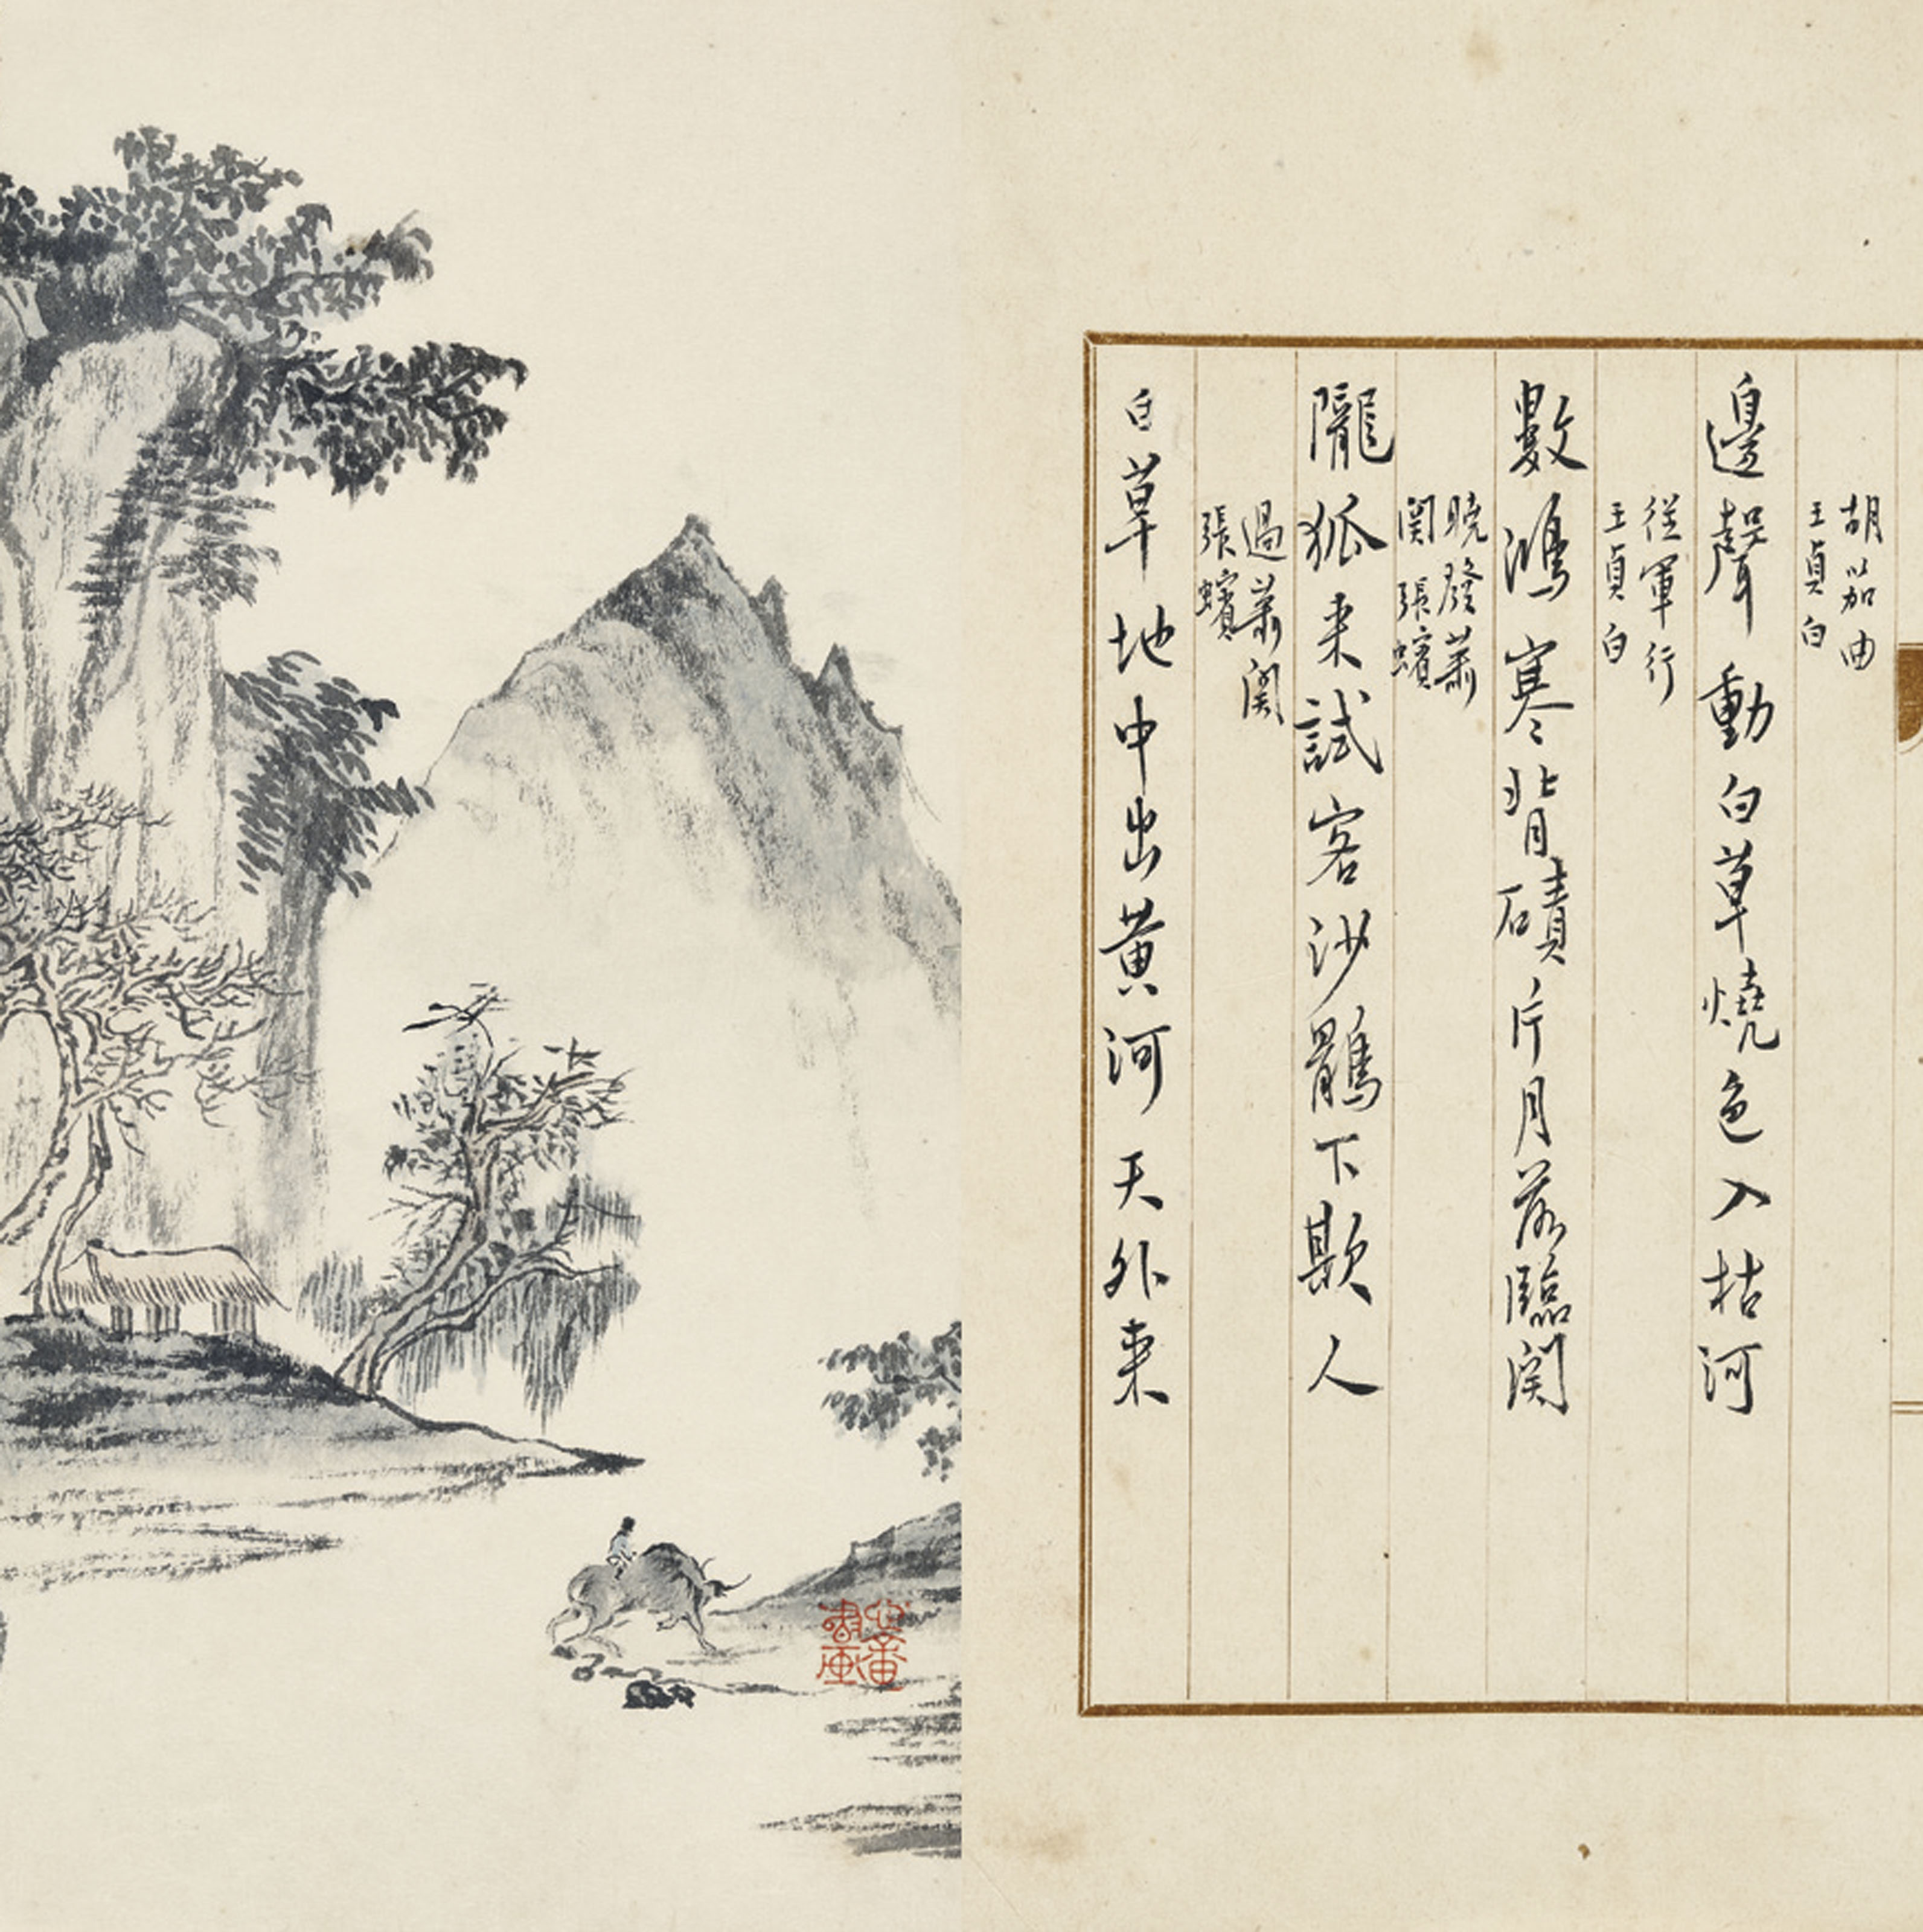 胡笳曲
王貞白
邊聲動白草燒色入枯河
從軍行
王貞白
數鴻寒背磧片月落臨関
曉發蕭
関 張蠙
隴狐来試客沙鶻下欺人
過蕭関
張蠙
白草地中出黄河天外来
心畬
書畫